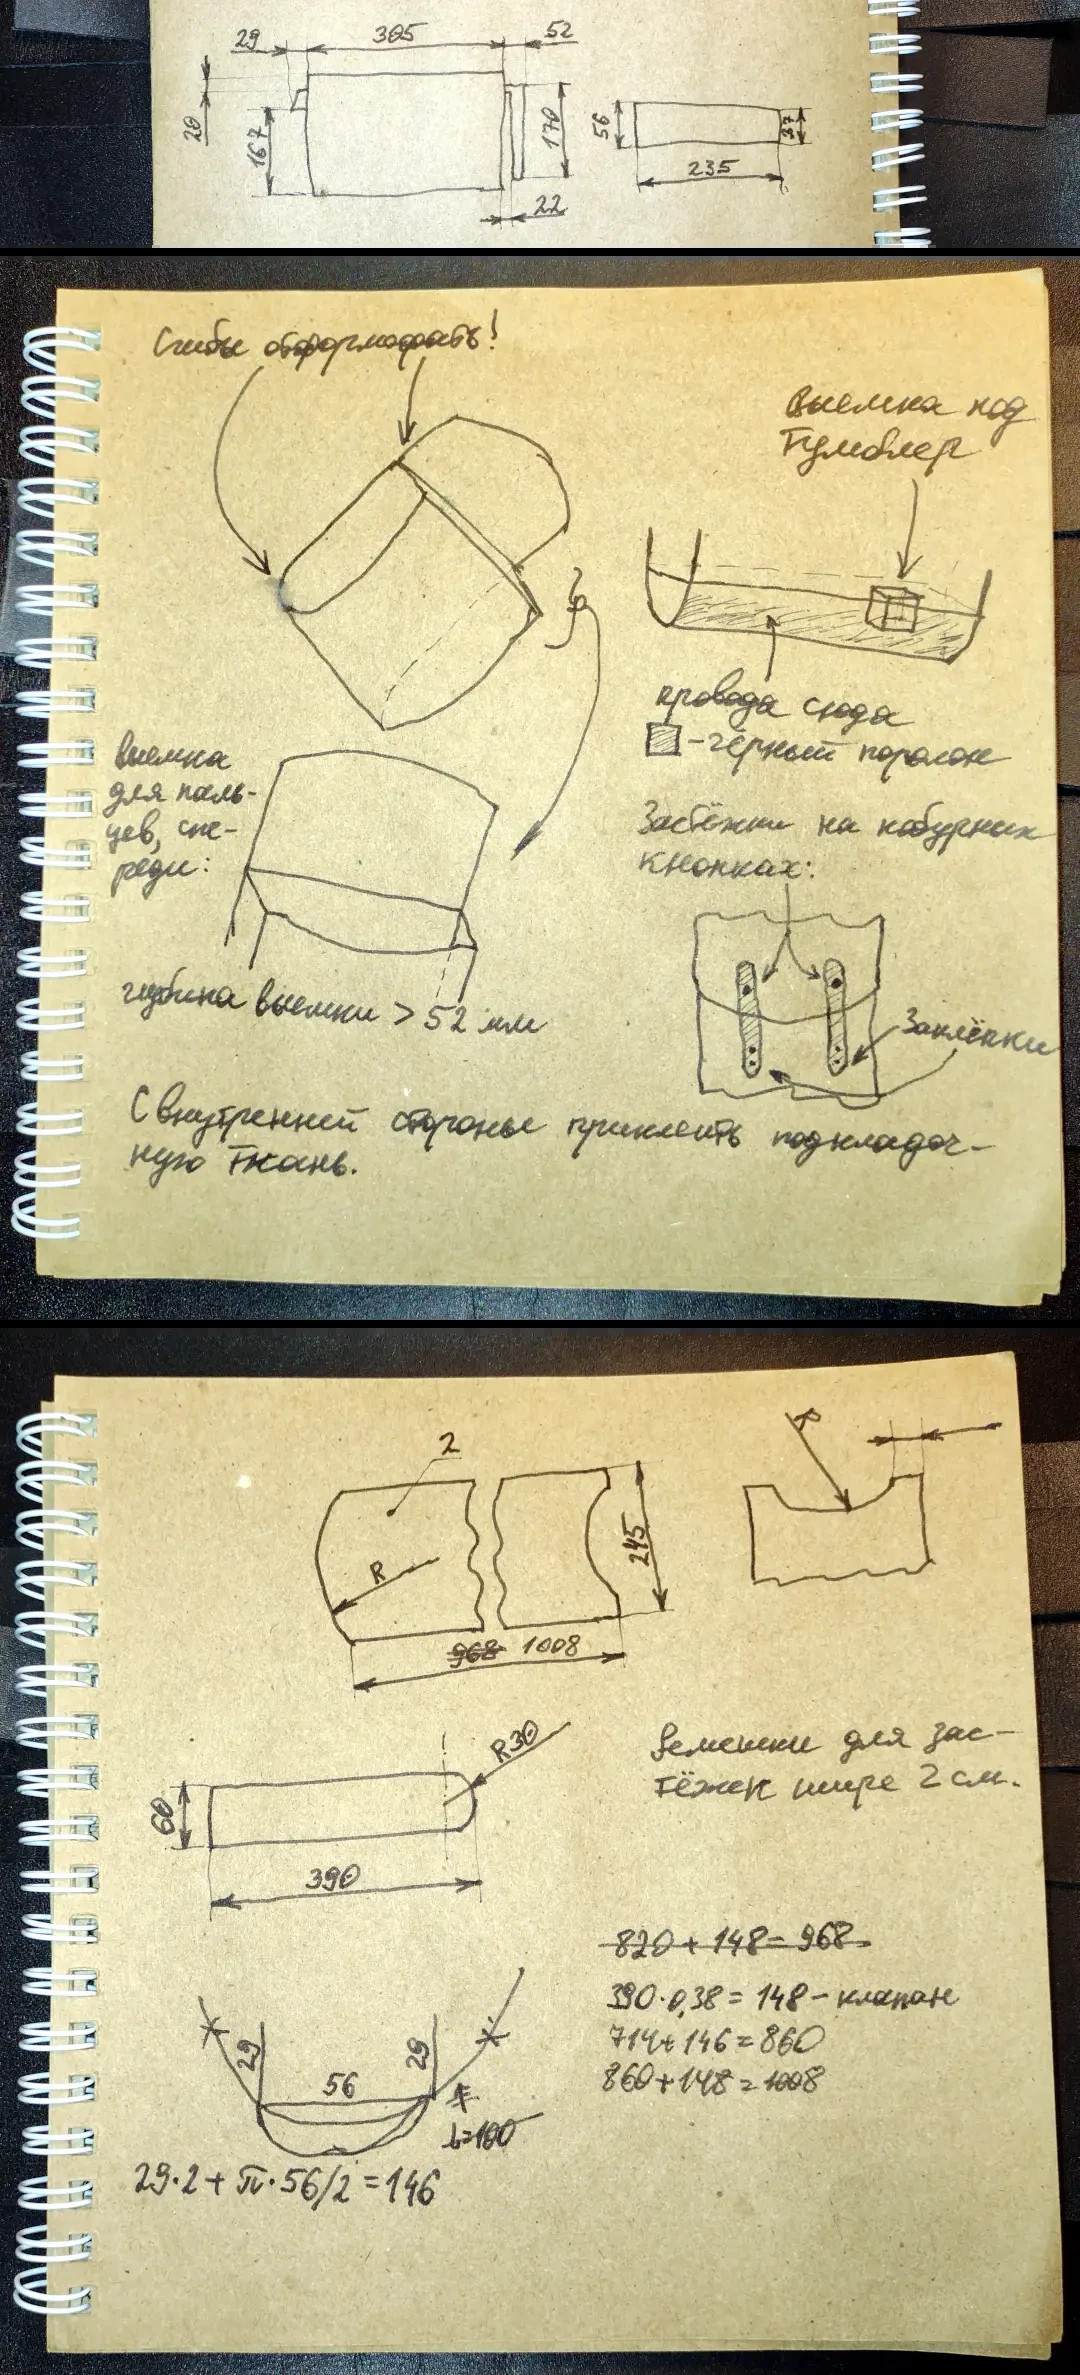 29
305
52
20
167
170
22
56
235
37
Сгибы отформовать!
Выемка под
тумблер
провода сюда
-чёрный поролон
Выемка
для паль-
цев, спе-
реди:
глубина выемки > 52 мм
Застёжки на кобурных
кнопках:
Заклёпки
С внутренней стороны приклеить подкладоч-
ную ткань.
2
R
R
245
968 1008
60
390
R30
Ремешки для зас-
тёжек шире 2 см.
820 + 148 = 968
390·0,38 = 148 - клапан
714+146=860
860+148=1008
29
56
29
L=100
29·2+π·56/2=146